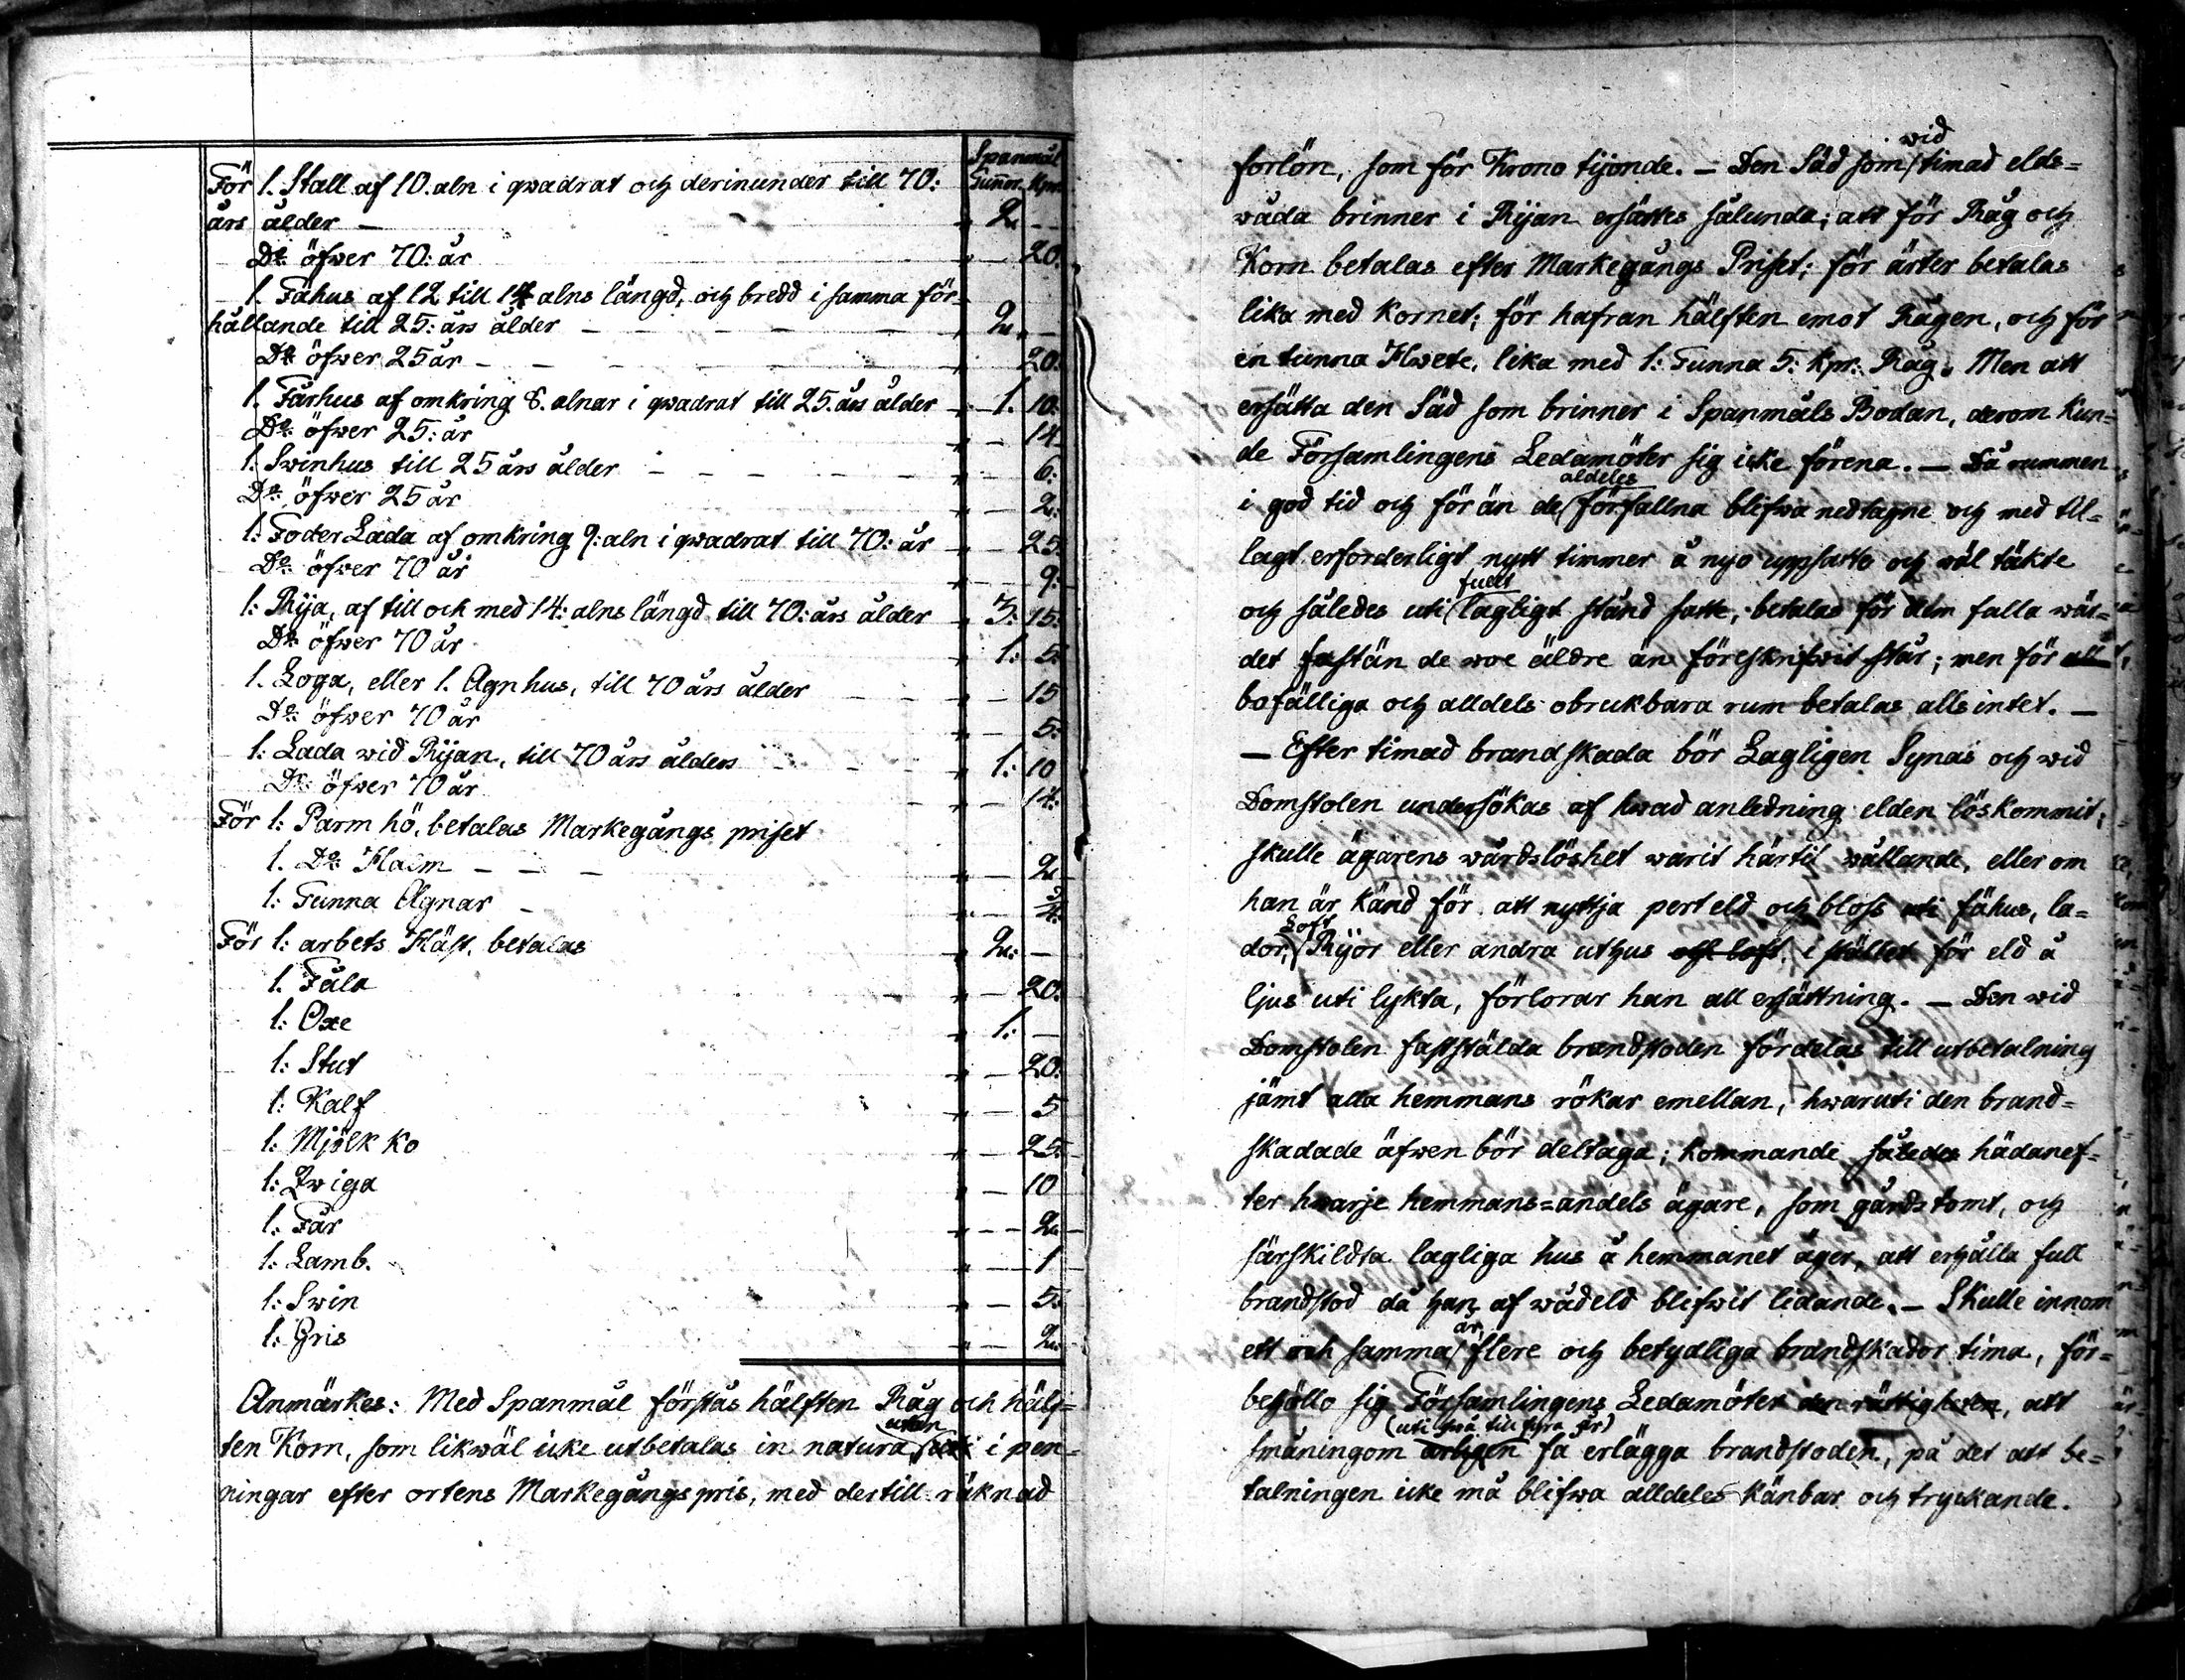 Spanmål
Tunnor. Kpr.
För 1. Stall af 10. aln i qwadrat och derinunder till 70:
års ålder — „ 2. —
Do: öfwer 70: år „ — 20.
1. Fähus af 12 till 14 alns längd, och bredd i samma för-
hållande till 25: års ålder — — — — „ 2. —
Do: öfwer 25 år — — „ — 20:
1. Fårhus af omkring 8. alnar i qwadrat till 25. års ålder „ 1. 10:
Do: öfwer 25: år „ — 14
1. Swinhus till 25 års ålder — — — — „ — 6:
Do: öfwer 25 år „ — 2:
1: Foder Lada af omkring 9: aln i qwadrat till 70: år „ — 25.
Do: öfwer 70 år „ — 9:
1: Rija, af till och med 14: alns längd till 70: års ålder „ 3: 15:
Do: öfwer 70 år „ 1: 5.
1. Loga, eller 1. Agnhus, till 70 års ålder „ — 15
Do: öfwer 70 år „ — 5:
1: Lada wid Rijan, till 70 års ålders „ 1: 10
Do: öfwer 70 år „ — 14:
För 1: Parm hö, betalas Markegångs priset
1. Do: Halm — — — „ — 2
1: Tunna Agnar — „ — 3/4:
För 1: arbets Häst, betalas „ 2: —
1. Fåla „ — 20:
1: Oxe „ 1: —
1: Stut „ — 20:
1: Kalf „ — 5
1: Mjölk ko „ — 25:
1: Qwiga „ — 10
1: Får „ — 2
1: Lamb. „ — 1
1: Swin „ — 5:
1: Gris „ — 2:
Anmärkes: Med Spanmål förstås hälften Råg och hälf-
utan
ten Korn, som likwäl icke utbetalas in natura, i pen-
ningar efter ortens Markegångs pris, med dertill räknad
wid
forlön, som för Krono tijonde. — Den Säd som timad elds-
wåda brinner i Rijan ersättes sålunda; att för Råg och
Korn betalas efter Markegångs Priset; för ärter betalas
lika med Kornet; för hafran hälften emot Rågen, och för
en tunna Hwete, lika med 1: Tunna 5: Kpr: Råg. Men att
ersätta den Säd som brinner i Spanmåls Bodan, derom kun-
de Församlingens Ledamöter sig icke förena. — Då rummen
aldeles
i god tid och förän de förfallna blifwa nedtagne och med til-
lagt erforderligt nytt timmer å nyo uppsatte och wäl täkte
fullt
och således uti lagligt stånd satte, betalas för dem fulla wär-
det fastän de woro äldre än föreskrifwit står; men för all
bofälliga och alldels obrukbara rum betalas alls intet. —
— Efter timad brandskada bör Lagligen Synas och wid
Domstolen undersökas af hwad anledning elden löskommit;
skulle ägarens wårdslöshet warit härtil wållande, eller om
han är känd för att nyttja pert eld och bloss uti fähus, la-
Loft
dor, Rijor eller andra uthus och loft, i stället för eld å
ljus uti lykta, förlorar han all ersättning. — Den wid
Domstolen faststälda brandstoden fördelas till utbetalning
jämt alla hemmans rökar emellan, hwaruti den brand-
skadade äfwen bör deltaga; kommande således hädanef-
ter hwarje hemmans=andels ägare, som gårdstomt, och
särskildta lagliga hus å hemmanet äger, att erhålla full
brandstod då han af wådeld blifwit lidande. — Skulle innom
år,
ett och samma flere och betydliga brandskador tima, för-
behöllo sig Församlingens Ledamöter den rättigheten, att
(uti två till fyra år)
småningom årligen få erlägga brandstoden, på det att be-
talningen icke må blifwa alldeles känbar och tryckande.